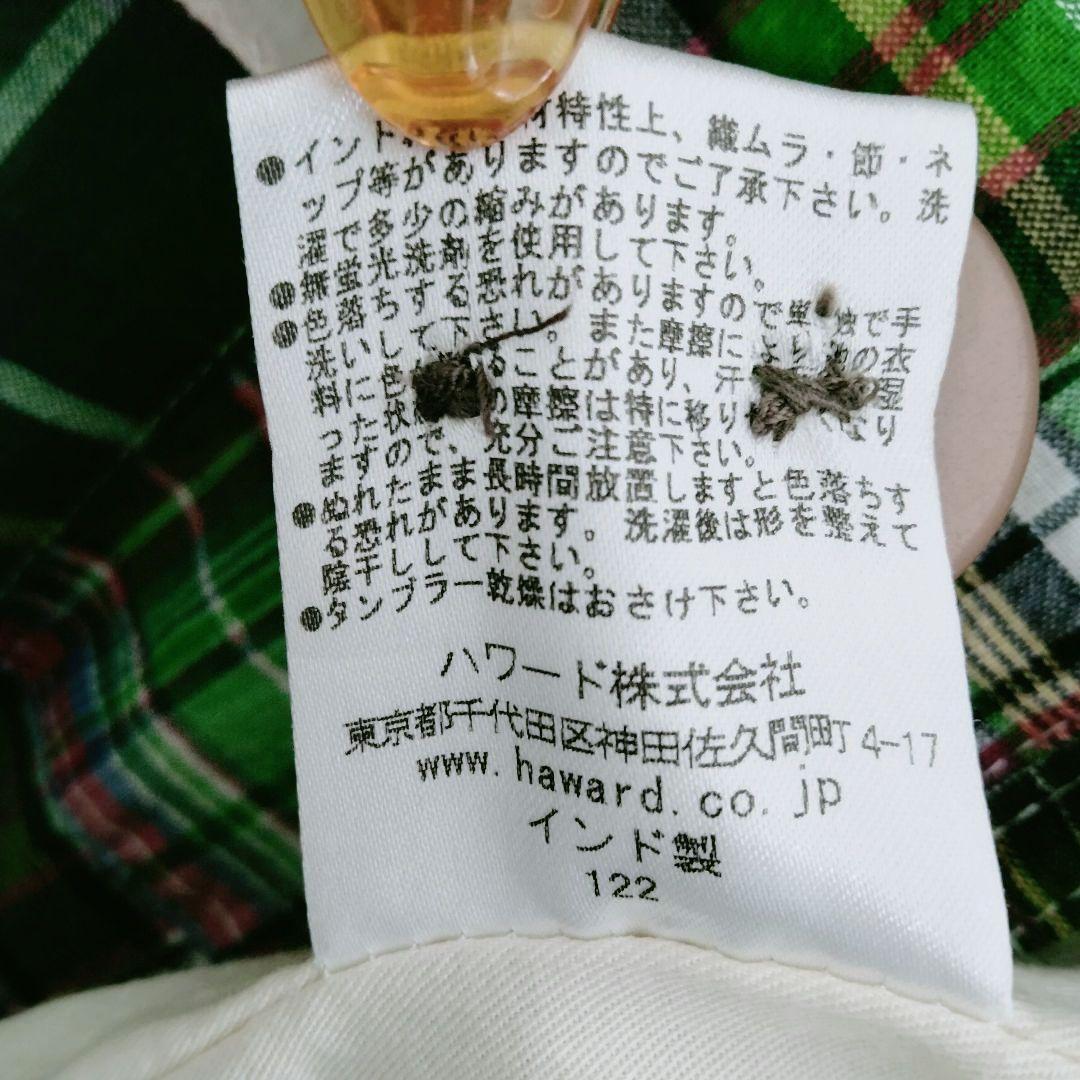 ●インド 材特性上、織ムラ・節・ネ
ップ等がありますのでご了承下さい。洗
濯で多少の縮みがあります。
●無蛍光洗剤を使用して下さい。
●色落ちする恐れがありますので単独で手
洗いして下さい。また摩擦により他の衣
料に色 ることがあり、汗 湿
った状 の摩擦は特に移り なり
ますので、充分ご注意下さい。
●ぬれたまま長時間放置しますと色落ちす
る恐れがあります。洗濯後は形を整えて
陰干しして下さい。
●タンブラー乾燥はおさけ下さい。
ハワード株式会社
東京都千代田区神田佐久間町4-17
www.haward.co.jp
インド製
122